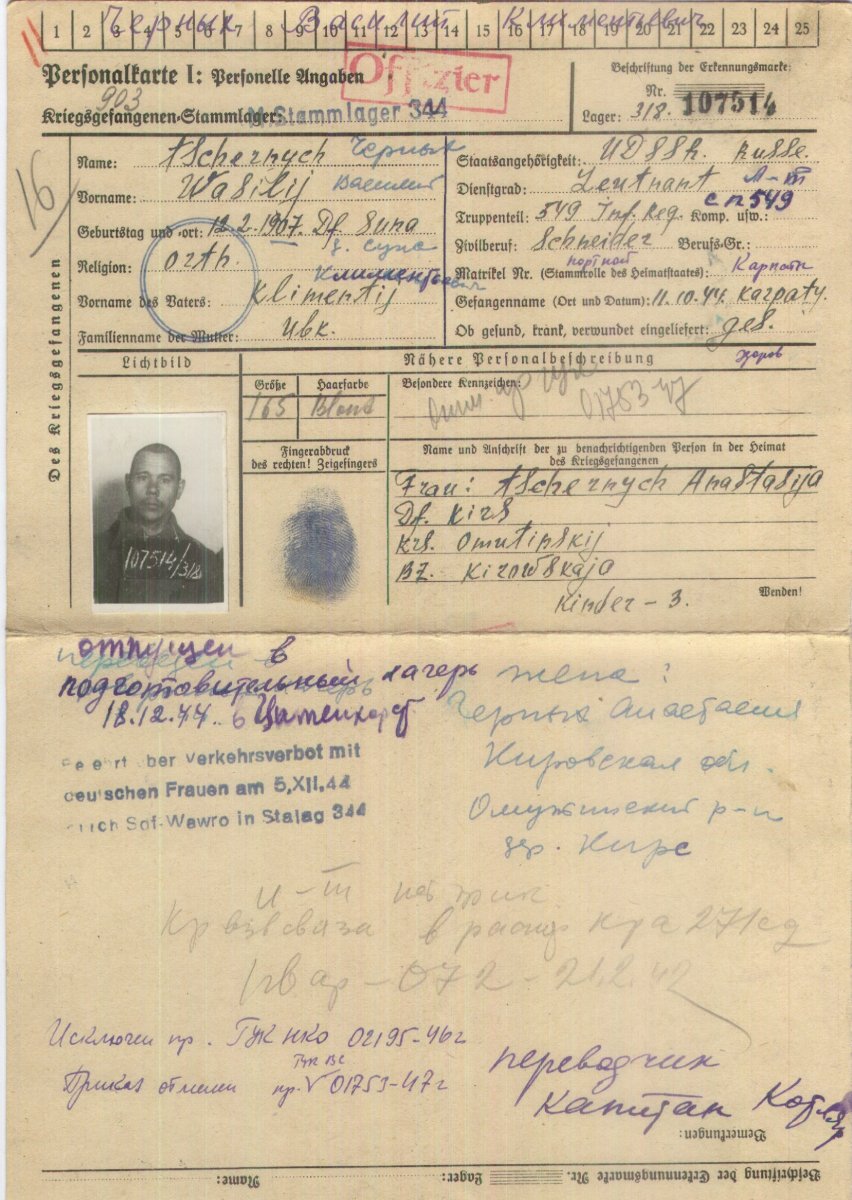 Черных Василий Климентьевич
1 2 3 4 5 6 7 8 9 10 11 12 13 14 15 16 17 18 19 20 21 22 23 24 25
Personalkarte I: Personelle Angaben
Offizier
903
Kriegsgefangenen-Stammlager: M.Stammlager 344
Beschriftung der Erkennungsmarke
Nr. 107514
Lager: 318.
16
Des Kriegsgefangenen
Name: Tschernych Черных
Vorname: Wasilij Василий
Geburtstag und -ort: 12.2.1907. Df. Suna
д. Суна
Religion: orth.
Климентьевич
Vorname des Vaters: Klimentij
Familienname der Mutter: Ubk.
Staatsangehörigkeit: UDSSR. Russe.
Dienstgrad: Leutnant Л-т
Truppenteil: 549 Inf. Reg. Komp. usw.: сп 549
Zivilberuf: Schneider Berufs-Gr.:
портной
Matrikel Nr. (Stammrolle des Heimatstaates): Карпаты
Gefangennahme (Ort und Datum): 11.10.44. Karpaty.
Ob gesund, krank, verwundet eingeliefert: ges.
здоров
Lichtbild
Nähere Personalbeschreibung
Größe Haarfarbe Besondere Kennzeichen:
165 Blond
01753 47
Fingerabdruck
des rechten! Zeigefingers
Name und Anschrift der zu benachrichtigenden Person in der Heimat
des Kriegsgefangenen
Frau: Tschernych Anastasija
Df. Kirs
Krs. Omutinskij
Bz. Kirowskaja
Kinder – 3.
Wenden!
107514/318
отпущен в
подготовительный лагерь
18.12.44. в
жена:
Черных Анастасия
Кировская обл.
Омутнинский р-н
дер. Кирс
über Verkehrsverbot mit
deutschen Frauen am 5.XII.44
durch Sdf. Wawro in Stalag 344
в расп
271 сд
072 - 21.2.42
Исключен пр. ГУК НКО 02195-46г
Приказ отменен пр. 01753-47г
ГУК ВС
переводчик
капитан
Bemerkungen:
Beschriftung der Erkennungsmarke Nr. Lager: Name: